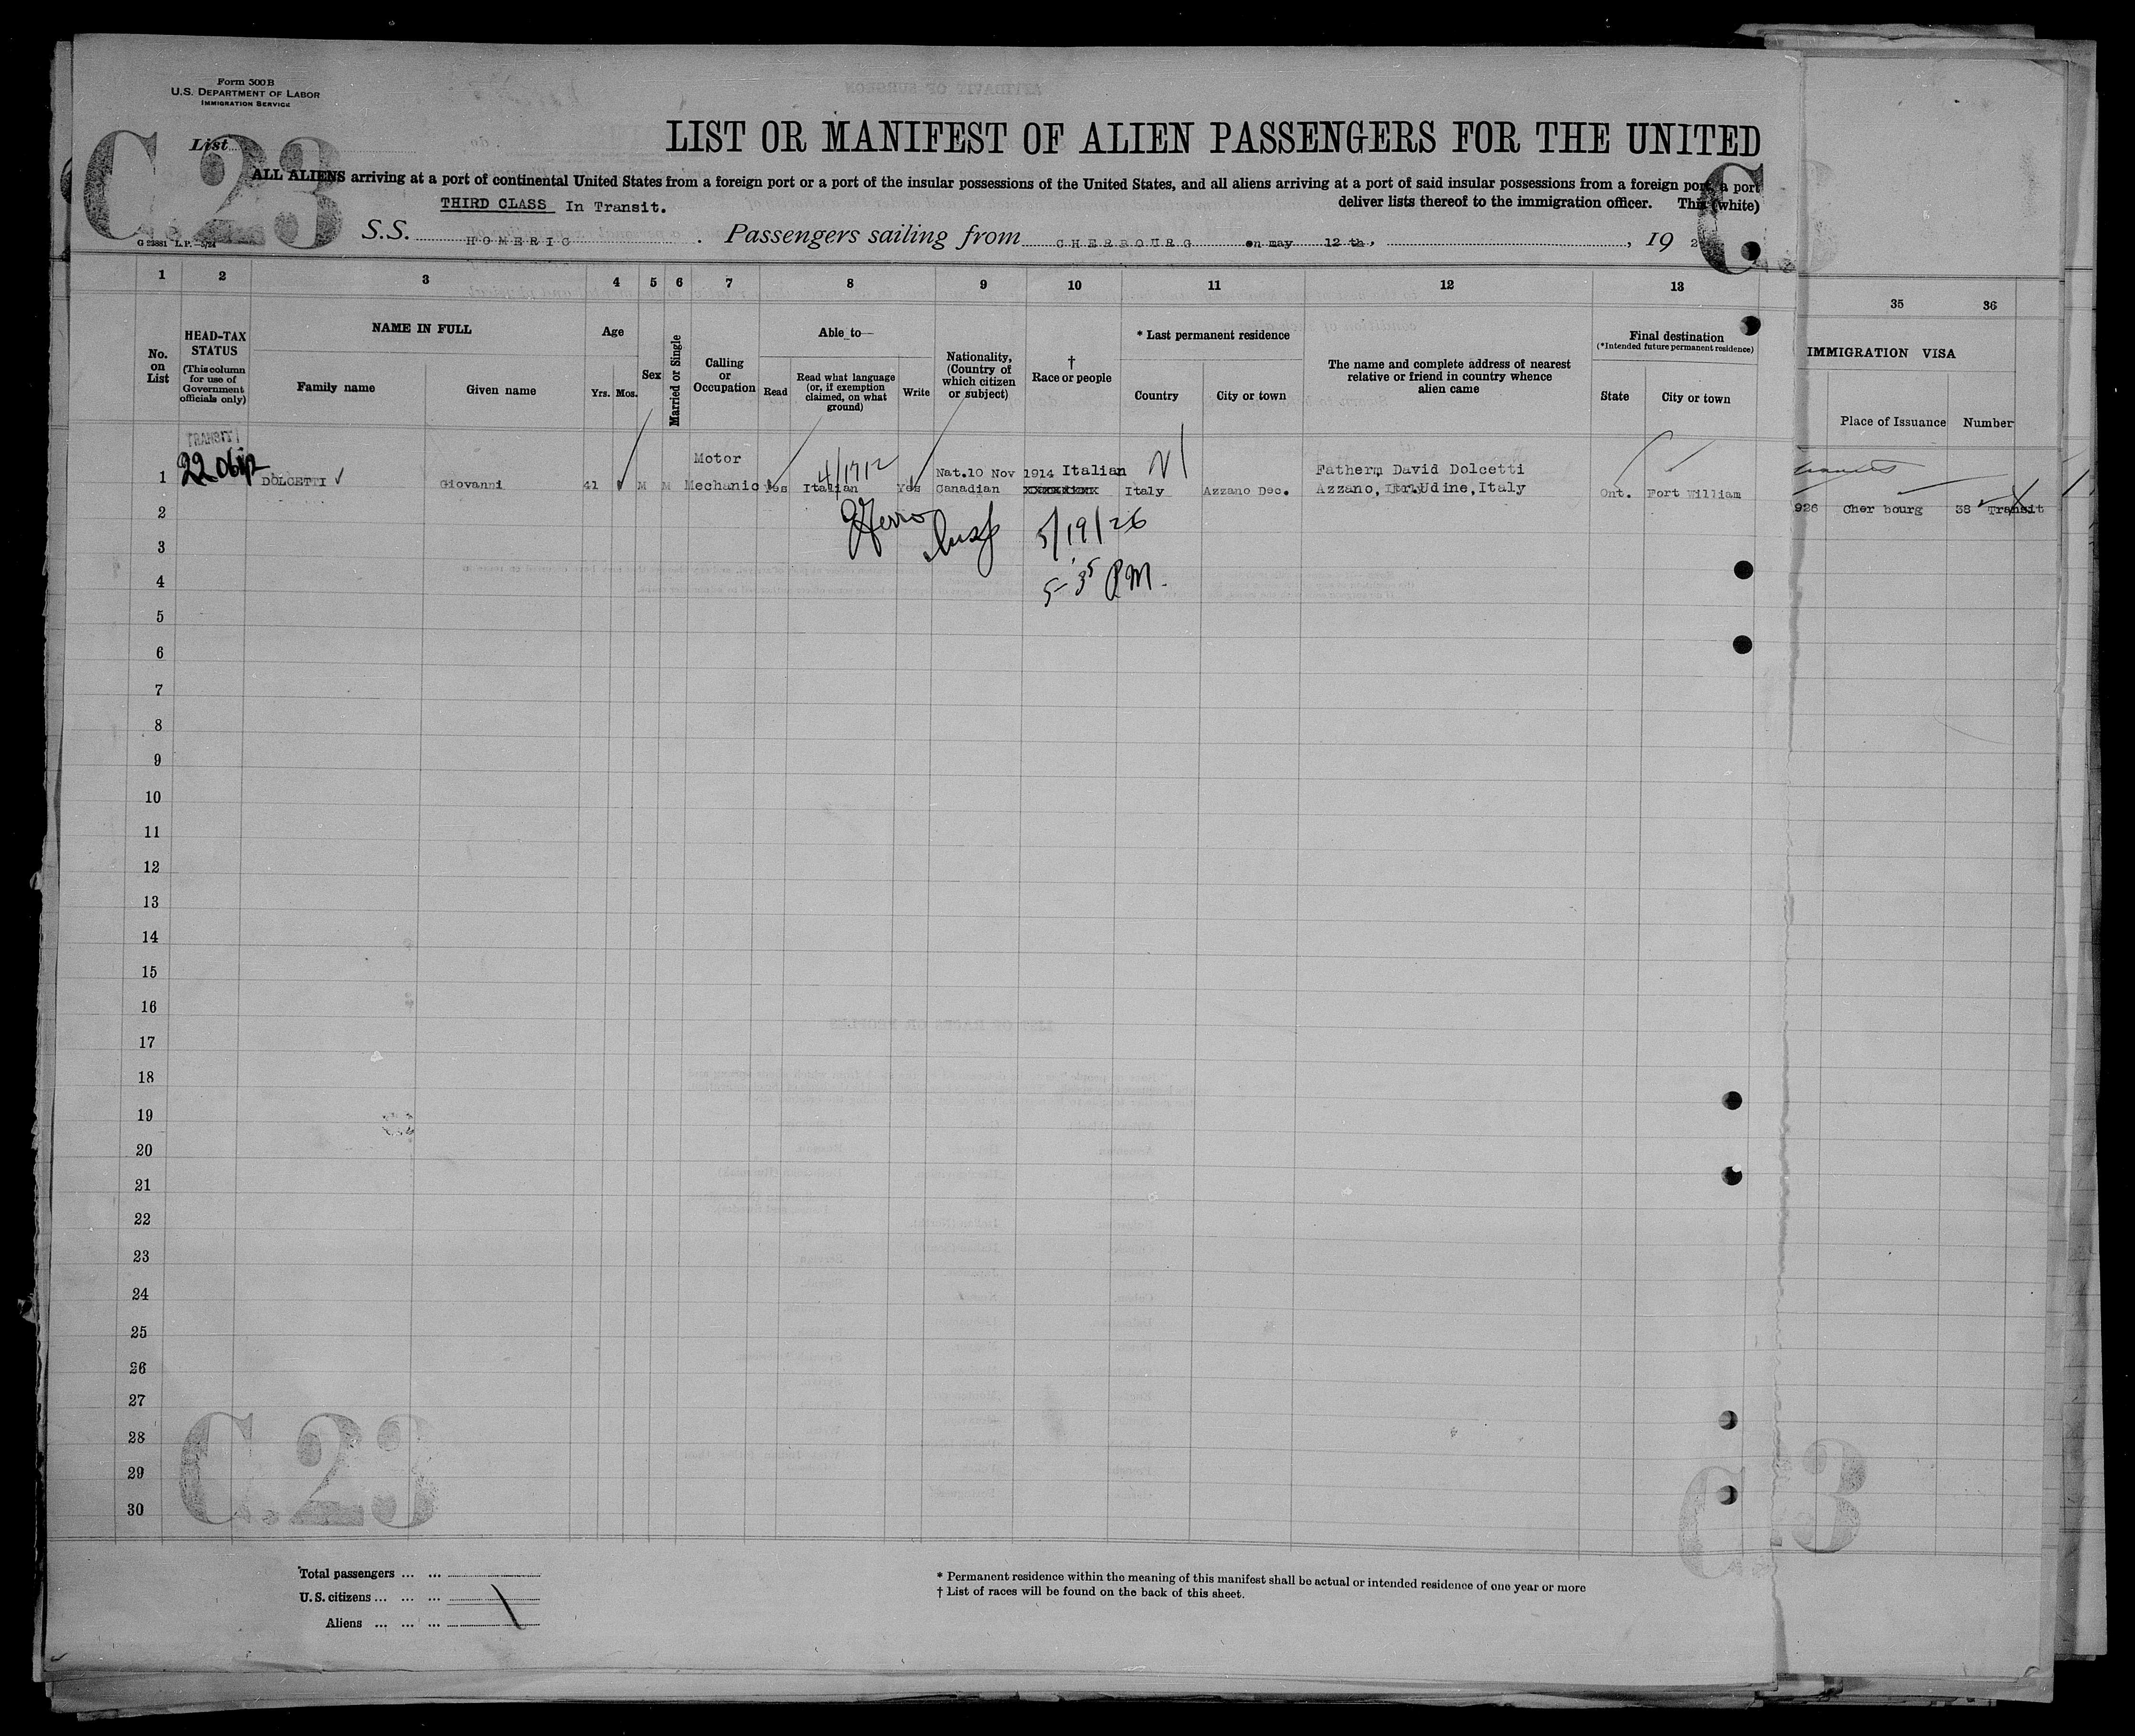 Form 500 B
U.S. DEPARTMENT OF LABOR
IMMIGRATION SERVICE
C 23
List
LIST OR MANIFEST OF ALIEN PASSENGERS FOR THE UNITED
ALL ALIENS arriving at a port of continental United States from a foreign port or a port of the insular possessions of the United States, and all aliens arriving at a port of said insular possessions from a foreign port, a port
THIRD CLASS In Transit.
deliver lists thereof to the immigration officer. This (white)
S.S. HOMERIC. Passengers sailing from CHERBOURG on may 12 th, , 19 2
C.
1 2 3 4 5 6 7 8 9 10 11 12 13
35 36
No. on List
HEAD-TAX STATUS
(This column for use of Government officials only)
NAME IN FULL
Family name
Given name
Age
Yrs. Mos.
Sex
Married or Single
Calling or Occupation
Able to—
Read
Read what language (or, if exemption claimed, on what ground)
Write
Nationality, (Country of which citizen or subject)
† Race or people
* Last permanent residence
Country
City or town
The name and complete address of nearest relative or friend in country whence alien came
Final destination
(*Intended future permanent residence)
State
City or town
IMMIGRATION VISA
Place of Issuance Number
TRANSIT
1 DOLCETTI Giovanni 41 M M Motor Mechanic Yes Italian Yes Nat.10 Nov 1914 Canadian Italian Italy Azzano Dec. Father David Dolcetti Azzano, Udine,Italy Ont. Fort William
926 Cher bourg 38 Transit
4/1712
5/19/26
5-35 PM.
2
3
4
5
6
7
8
9
10
11
12
13
14
15
16
17
18
19
20
21
22
23
24
25
26
27
28
29
30
C.23
C 3
Total passengers ... ...
U.S. citizens ... ... ...
Aliens ... ... ...
* Permanent residence within the meaning of this manifest shall be actual or intended residence of one year or more
† List of races will be found on the back of this sheet.